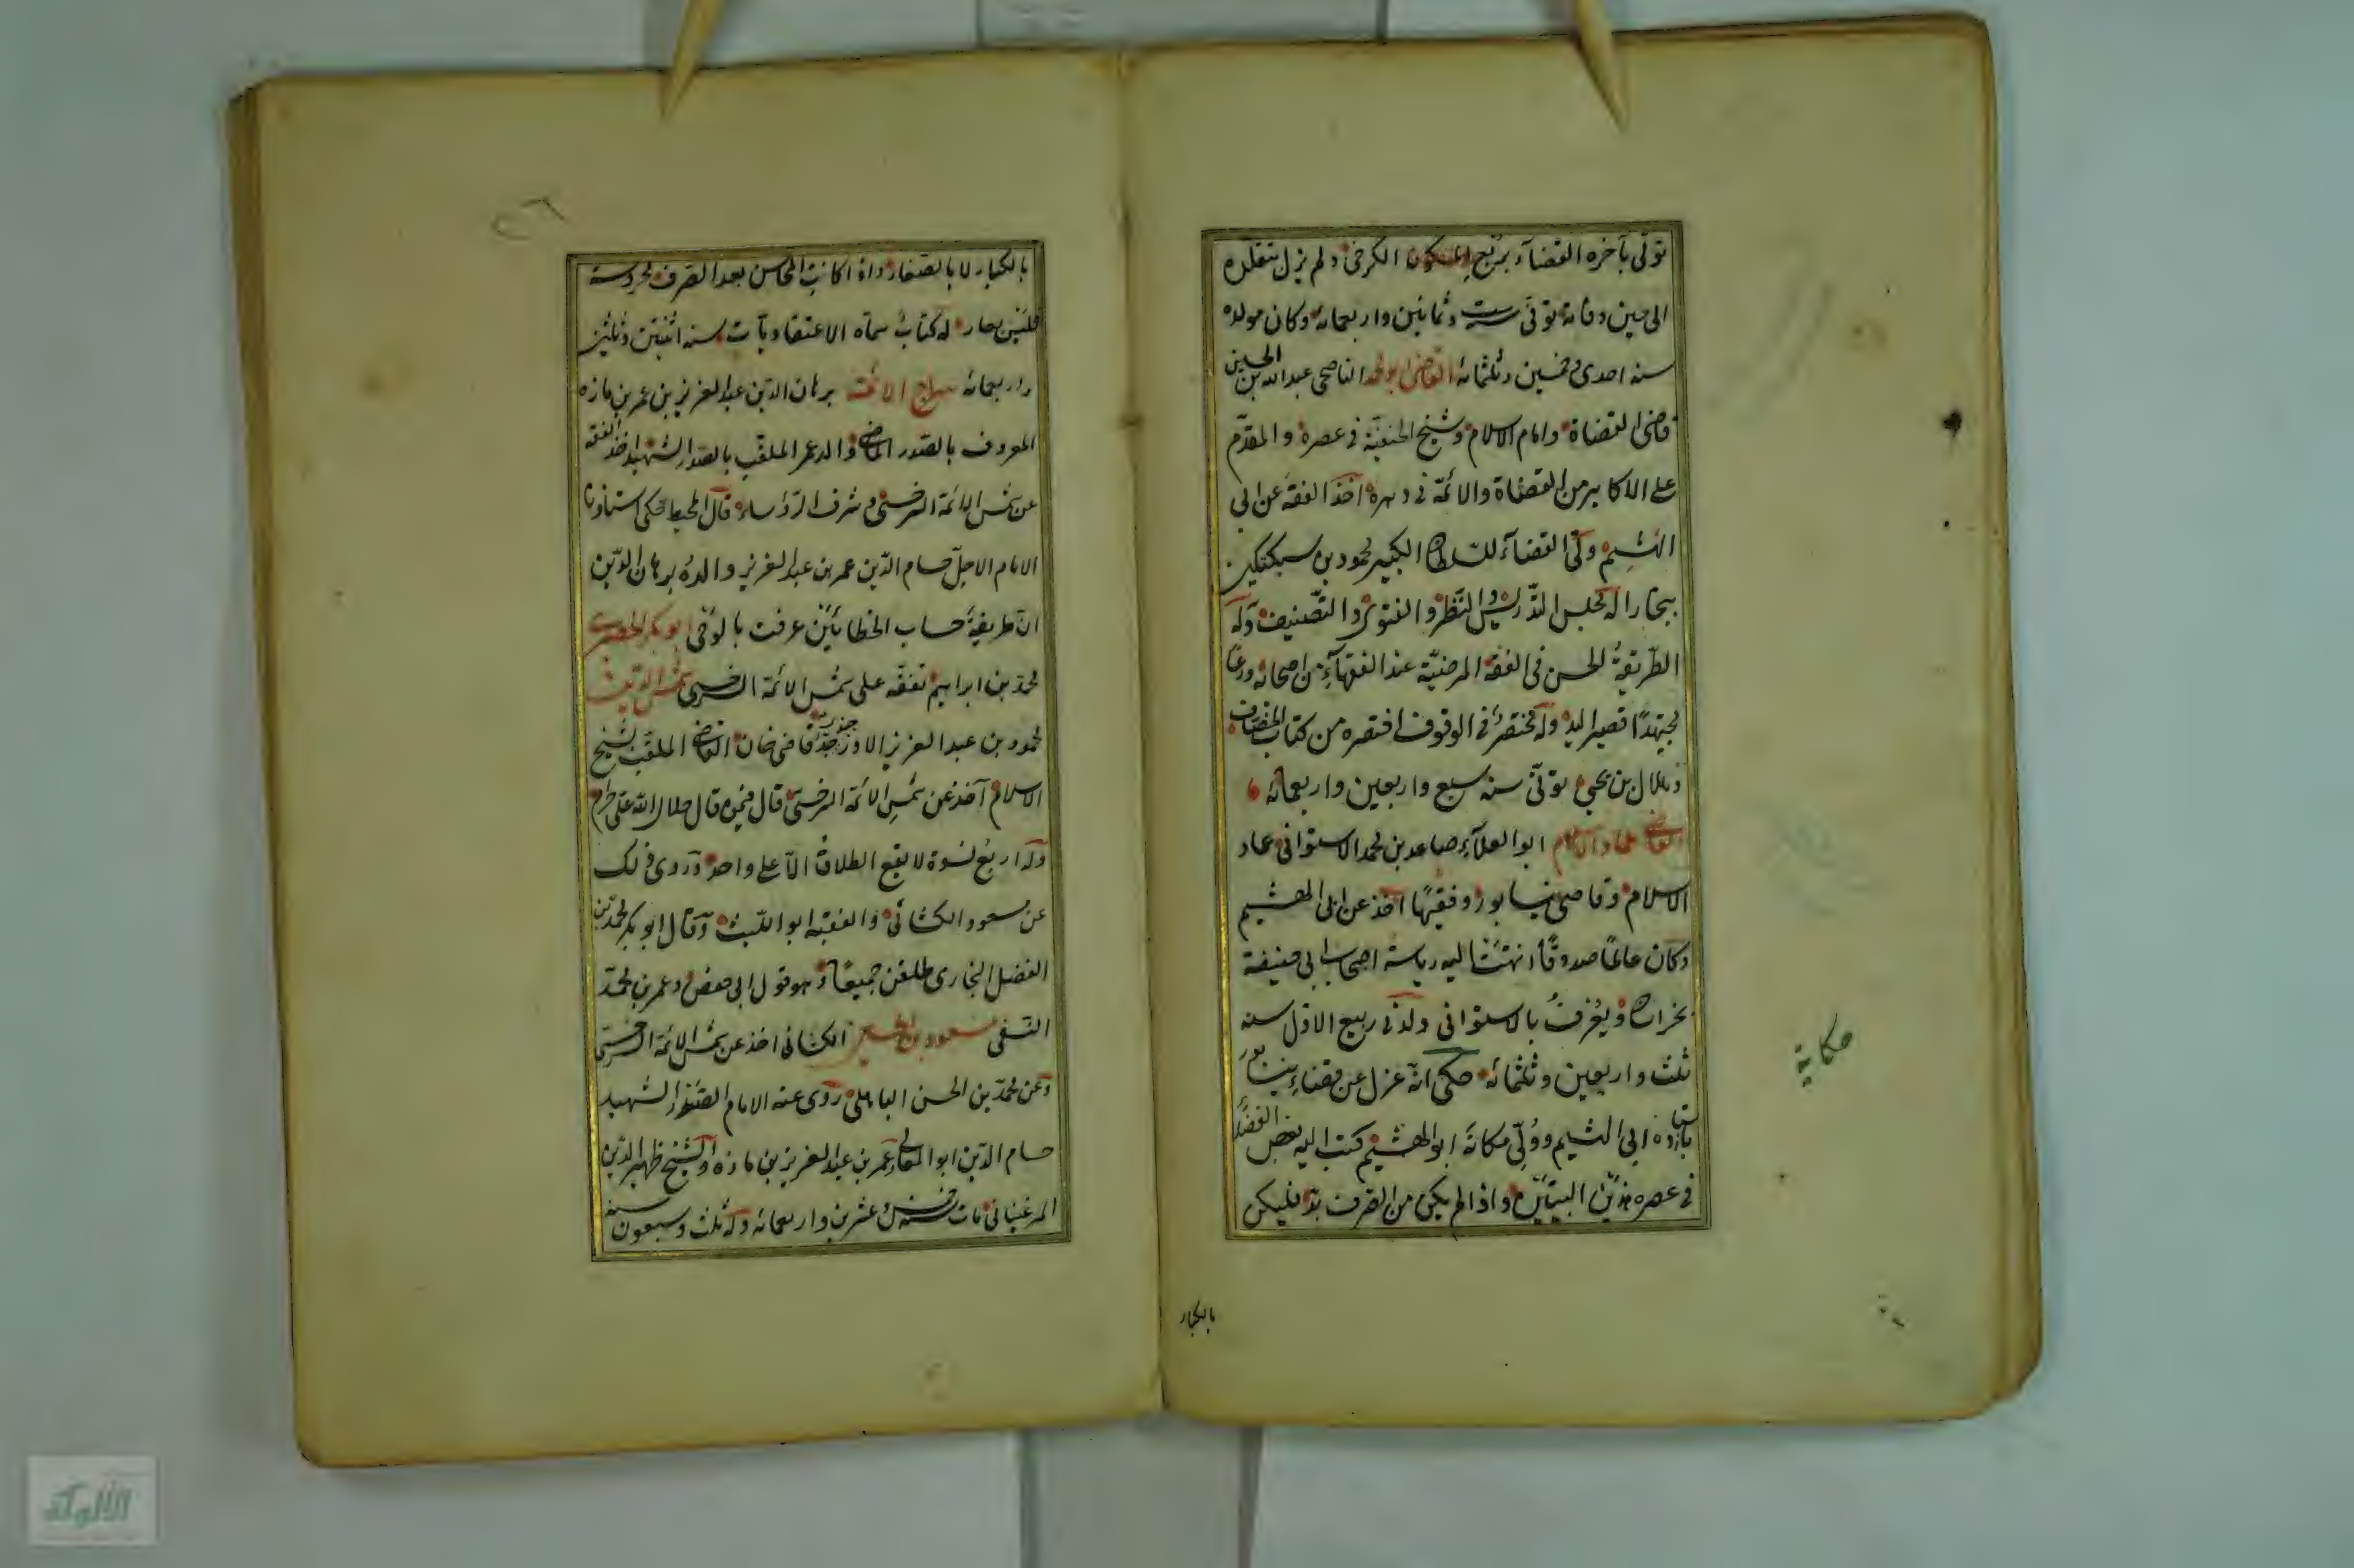 تولى بآخره القضاء بربع الكرخ ولم يزل يتقلده
الى حين وفاته توفى ست وثمانين واربعمائه وكان مولده
سنه احدى وخمسين وثلثمائه القاضى ابو محمد الناصحى عبدالله بن الحسين
قاضى القضاة وامام الاسلام وشيخ الحنفية فى عصره والمقدّم
على الاكابر من القضاة والائمّة فى دهره اخذ الفقه عن ابى
الهثيم ولّى القضاء للسّلطان الكبير محمود بن سبكتكين
ببخارا له مجلس التّدريس والنّظر والفتوى والتّصنيف وله
الطّريقة الحسن فى الفقه المرضيّة عند الفقهاء من اصحابه ورعًا
مجتهدًا قصير اليد وله مختصر فى الوقوف اختصره من كتاب الخصّاف
وهلال بن يحيى توفّى سنه سبع واربعين واربعمائه
القاضى عماد الاسلام ابو العلآء صاعد بن محمد الاستوانى عماد
الاسلام وقاضى نيسابور وفقيهًا اخذ عن ابى الهشيم
وكان عالمًا صدوقًا انهتت اليه رياسة اصحاب ابى حنيفة
بخراسان ويعرف بالاستوانى ولد فى ربيع الاول سنه
ثلث واربعين وثلثمائه حكى انه عزل عن قضاء نيسابور
باستاذه ابى الهثيم وولّى مكانه ابو الهشيم كتب اليه بعض الفضلاء
فى عصره هذين البيتين واذا لم يكن من الصرف بدّ فليكن
بالكبار
حكاية
بالكبار لا بالصغار واذا كانت المحاسن بعد الصرف محروسة
له كتاب سمّاه الاعتقاد مات سنه اثنتين وثلثين
واربعمائه سراج الائمّة برهان الدّين عبد العزيز بن عمر بن مازه
المعروف بالصّدر الماضى والد عمر الملقّب بالصدر الشهيد اخذ الفقه
عن شمس الائمّة السرخسى وشرف الرّؤساء قال المحيط حكى استاذنا
الامام الاجلّ حسام الدّين عمر بن عبد العزيز والده برهان الدّين
انّ طريقة حساب الخطائين عرفت بالوحى ابو بكر الحصيرى
محمد بن ابراهيم تفقّه على شمس الائمّة السرخسى شمس الدّين
محمود بن عبد العزيز الاوزجندى جدّ قاضى خان القاضى الملقّب بشيخ
الاسلام اخذ عن شمس الائمّة السرخسى قال فيمن قال حلال الله على حرام
وله اربع نسوة لا يقع الطلاق الاّ على واحد وروى ذلك
عن مسعود الكشانى والفقيه ابو اللّيث وقال ابو بكر محمد بن
الفضل البخارى طلقن جميعًا وهو قول ابى حفص وعمر بن محمّد
النّسفى مسعود بن الكشانى اخذ عن شمس الائمّة السرخسى
وعن محمّد بن الحسن الباهلى روى عنه الامام الصّدر الشّهيد
حسام الدّين ابو المعالى عمر بن عبد العزيز بن مازه والشيخ ظهير الدّين
المرغينانى مات سنه عشرين واربعمائه وله ثلث وسبعون سنه
الألوكة